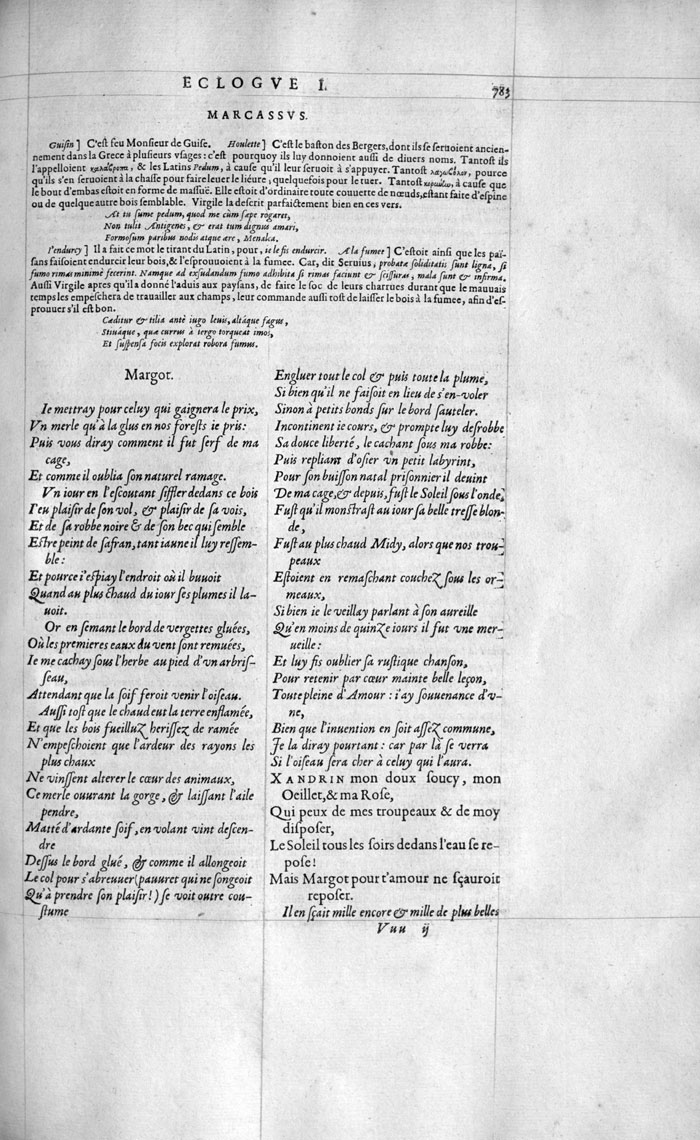 ECLOGVE I.
783
MARCASSVS.
Guisin ] C'est feu Monsieur de Guise. Houlette ] C'est le baston des Bergers, dont ils se seruoient ancien-
nement dans la Grece à plusieurs vsages : c'est pourquoy ils luy donnoient aussi de diuers noms. Tantost ils
l'appelloient & les Latins Pedum, à cause qu'il leur seruoit à s'appuyer. Tantost pource
qu'ils s'en seruoient à la chasse pour faire leuer le liéure ; quelquefois pour le tuer. Tantost à cause que
le bout d'embas estoit en forme de massuë. Elle estoit d'ordinaire toute couuerte de nœuds, estant faite d'espine
ou de quelque autre bois semblable. Virgile la descrit parfaictement bien en ces vers.
At tu sume pedum, quod me cùm sæpe rogaret,
Non tulit Antigenes, & erat tum dignus amari,
Formosum paribus nodis atque ære, Menalca.
I'endurcy ] Il a fait ce mot le tirant du Latin, pour, ie le fis endurcir. A la fumee ] C'estoit ainsi que les paï-
sans faisoient endurcir leur bois, & l'esprouuoient à la fumee. Car, dit Seruius, probatæ soliditatis sunt ligna, si
fumo rimas minimè fecerint. Namque ad exsudandum fumo adhibita si rimas faciunt & scissuras, mala sunt & infirma.
Aussi Virgile apres qu'il a donné l'aduis aux paysans, de faire le soc de leurs charrues durant que le mauuais
temps les empeschera de trauailler aux champs, leur commande aussi tost de laisser le bois à la fumee, afin d'es-
prouuer s'il est bon.
Cæditur & tilia antè iugo leuis, altáque fagus,
Stiuáque, quæ currus à tergo torqueat imos,
Et suspensa focis explorat robora fumus.
Margot.
Ie mettray pour celuy qui gaignera le prix,
Vn merle qu'à la glus en nos forests ie pris:
Puis vous diray comment il fut serf de ma
cage,
Et comme il oublia son naturel ramage.
Vn iour en l'escoutant siffler dedans ce bois
I'eu plaisir de son vol, & plaisir de sa vois,
Et de sa robbe noire & de son bec qui semble
Estre peint de safran, tant iaune il luy ressem-
ble :
Et pource i'espiay l'endroit où il buuoit
Quand au plus chaud du iour ses plumes il la-
uoit.
Or en semant le bord de vergettes gluées,
Où les premieres eaux du vent sont remuées,
Ie me cachay sous l'herbe au pied d'vn arbris-
seau,
Attendant que la soif feroit venir l'oiseau.
Aussi tost que le chaud eut la terre enflamée,
Et que les bois fueilluz herissez de ramée
N'empeschoient que l'ardeur des rayons les
plus chaux
Ne vinssent alterer le cœur des animaux,
Ce merle ouurant la gorge, & laissant l'aile
pendre,
Matté d'ardante soif, en volant vint descen-
dre
Dessus le bord glué, & comme il allongeoit
Le col pour s'abreuuer (pauuret qui ne songeoit
Qu'à prendre son plaisir !) se voit outre cou-
stume
Engluer tout le col & puis toute la plume,
Si bien qu'il ne faisoit en lieu de s'en-voler
Sinon à petits bonds sur le bord sauteler.
Incontinent ie cours, & prompte luy desrobbe
Sa douce liberté, le cachant sous ma robbe:
Puis repliant d'osier vn petit labyrint,
Pour son buisson natal prisonnier il deuint
De ma cage, & depuis, fust le Soleil sous l'onde,
Fust qu'il monstrast au iour sa belle tresse blon-
de,
Fust au plus chaud Midy, alors que nos trou-
peaux
Estoient en remaschant couchez sous les or-
meaux,
Si bien ie le veillay parlant à son aureille
Qu'en moins de quinze iours il fut vne mer-
ueille :
Et luy fis oublier sa rustique chanson,
Pour retenir par cœur mainte belle leçon,
Toute pleine d'Amour : i'ay souuenance d'v-
ne,
Bien que l'inuention en soit assez commune,
Je la diray pourtant : car par là se verra
Si l'oiseau sera cher à celuy qui l'aura.
XANDRIN mon doux soucy, mon
Oeillet, & ma Rose,
Qui peux de mes troupeaux & de moy
disposer,
Le Soleil tous les soirs dedans l'eau se re-
pose !
Mais Margot pour t'amour ne sçauroit
reposer.
Il en sçait mille encore & mille de plus belles
Vuu ij